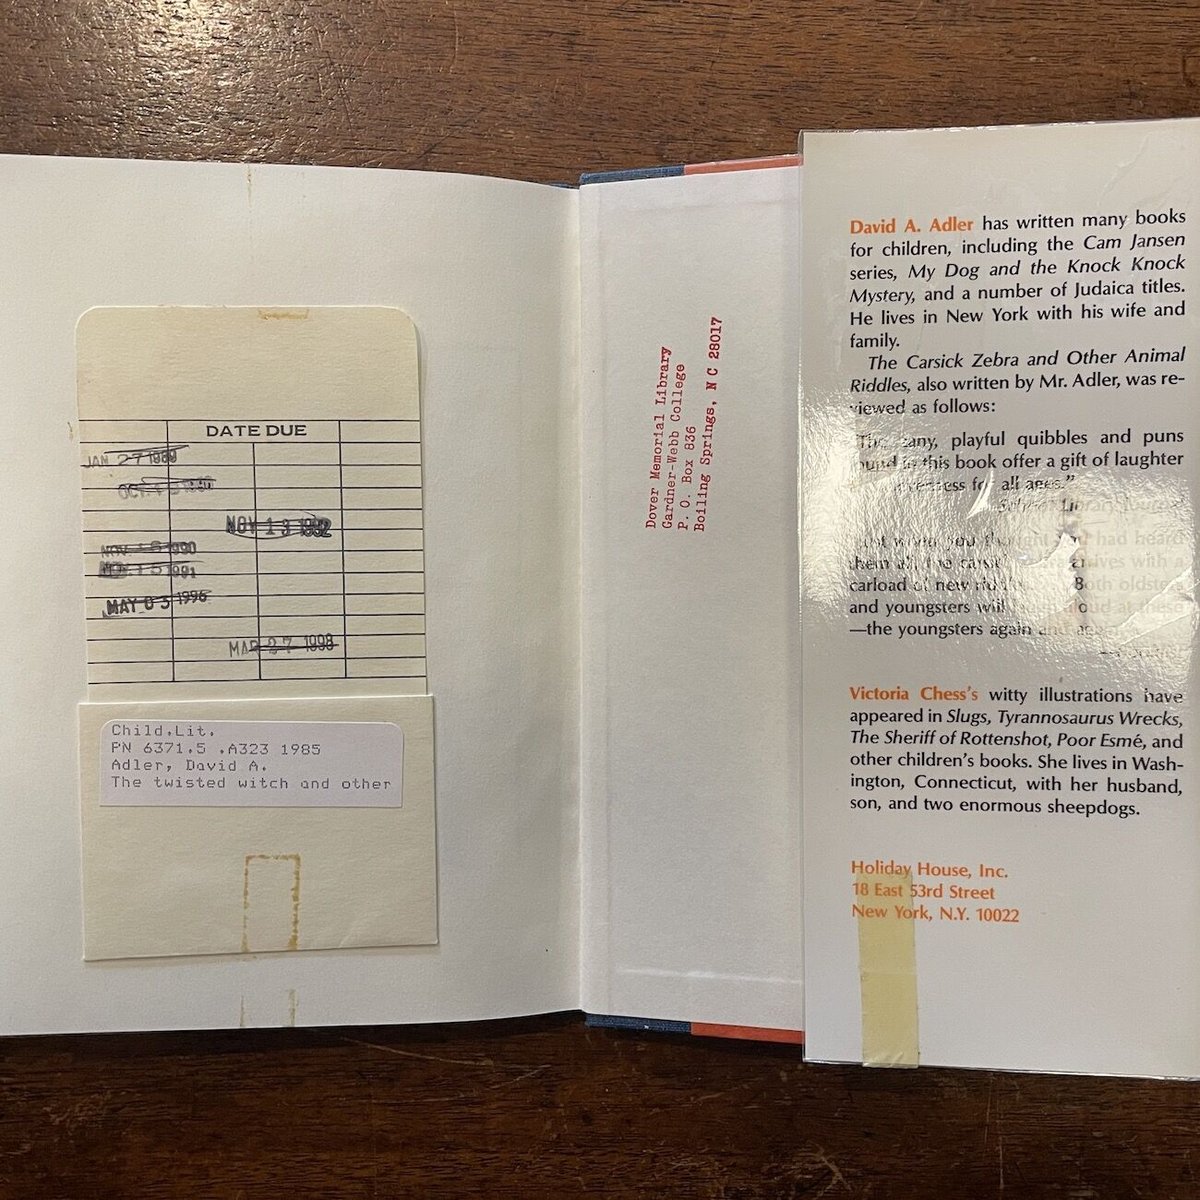 DATE DUE
JAN 27 1989
NOV 13 1992
1990
1991
MAY 03 1996
MAR 27 1998
Child.Lit.
PN 6371.5 .A323 1985
Adler, David A.
The twisted witch and other
Dover Memorial Library
Gardner-Webb College
P. O. Box 836
Boiling Springs, N C 28017
David A. Adler has written many books
for children, including the Cam Jansen
series, My Dog and the Knock Knock
Mystery, and a number of Judaica titles.
He lives in New York with his wife and
family.
The Carsick Zebra and Other Animal
Riddles, also written by Mr. Adler, was re-
viewed as follows:
playful quibbles and puns
found in this book offer a gift of laughter
for all ages."
School Library Journal
you thought you had heard
them all, the carsick arrives with a
carload of new Both oldsters
and youngsters will aloud at these
—the youngsters again and again
Victoria Chess's witty illustrations have
appeared in Slugs, Tyrannosaurus Wrecks,
The Sheriff of Rottenshot, Poor Esmé, and
other children's books. She lives in Wash-
ington, Connecticut, with her husband,
son, and two enormous sheepdogs.
Holiday House, Inc.
18 East 53rd Street
New York, N.Y. 10022